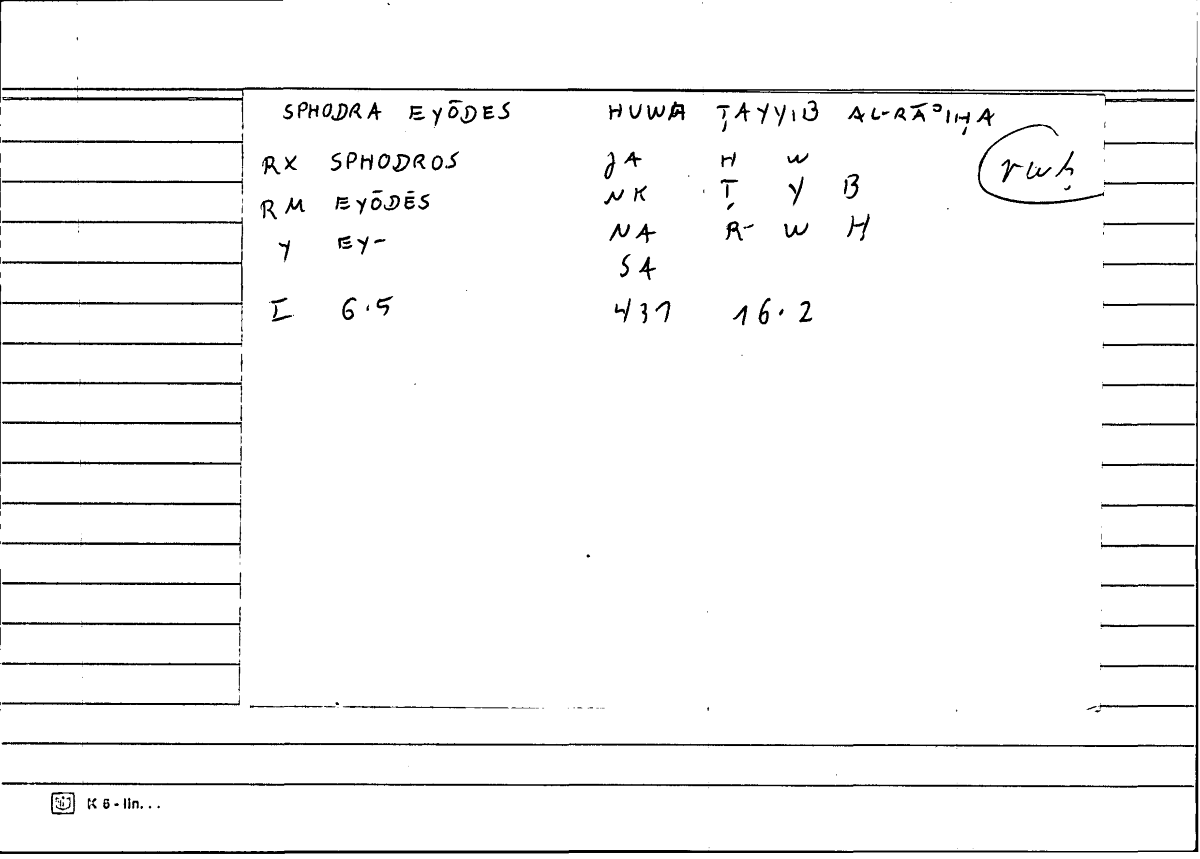 SPHODRA EYŌDES HUWA ṬAYYIB AL-RĀʾIḤA
RX SPHODROS JA H W rwḥ
RM EYŌDĒS NK Ṭ Y B
Y EY- NA R W H
SA
I 6.5 431 16.2
K 6 - lin...